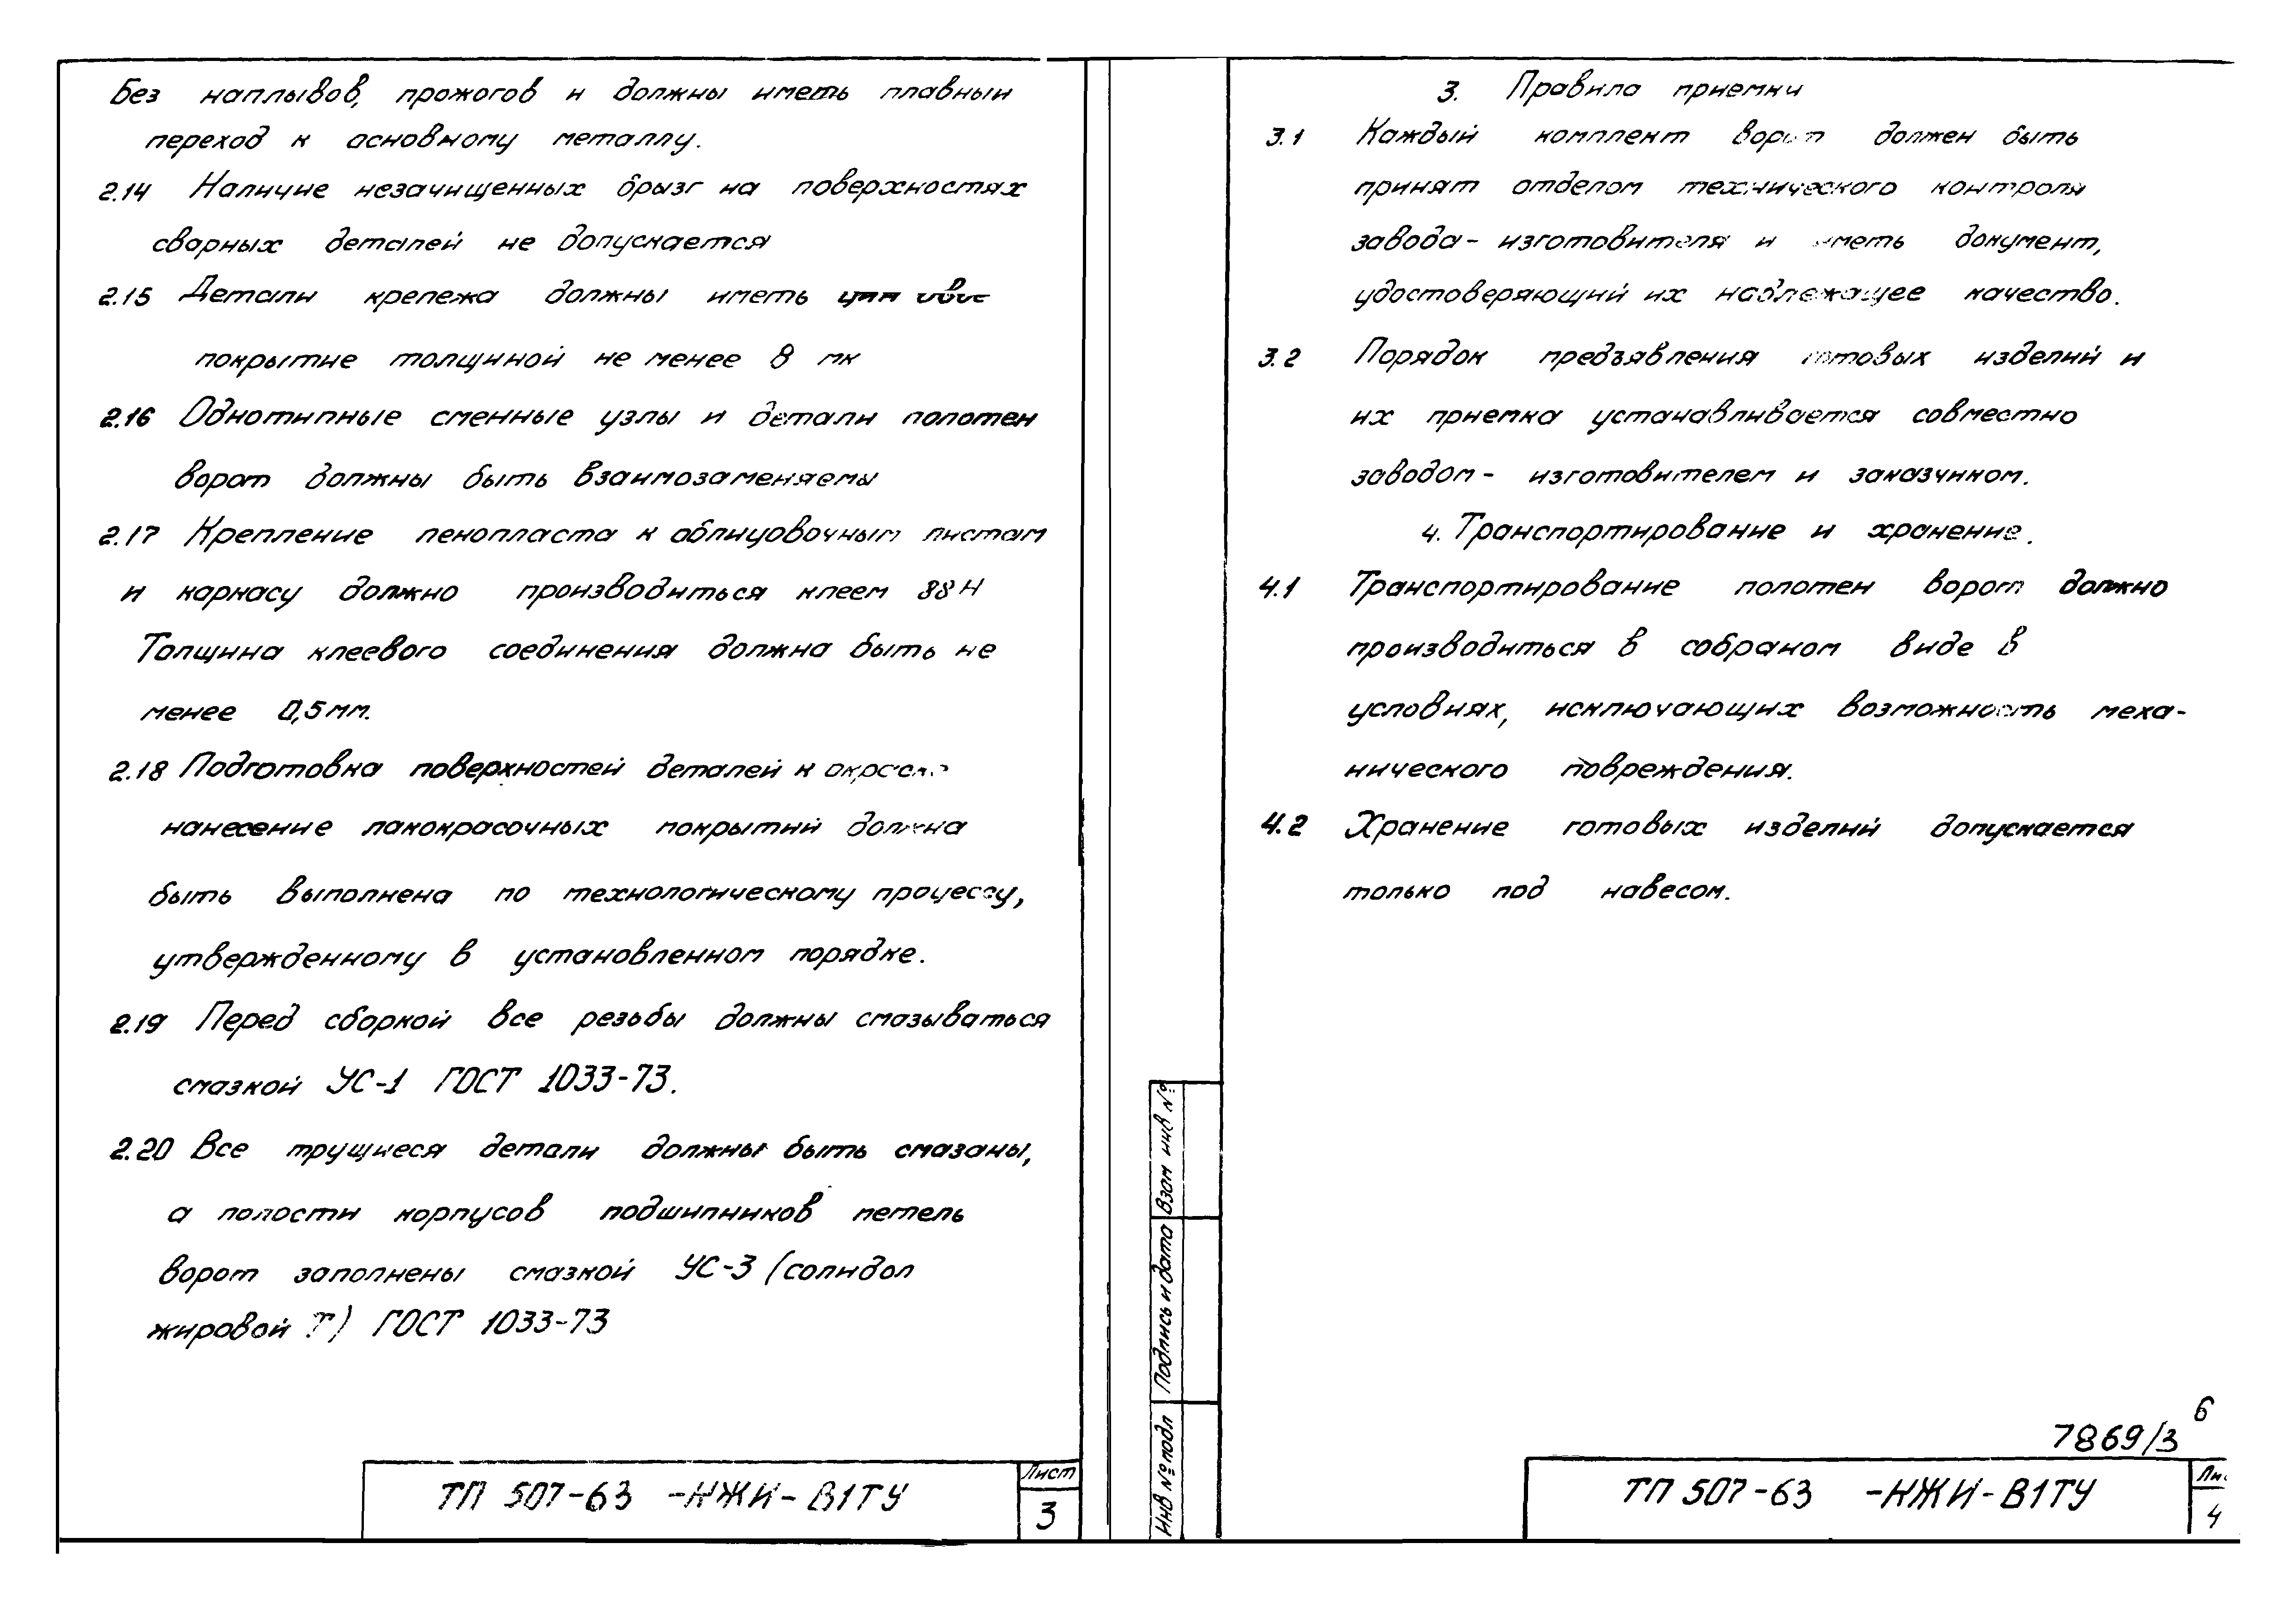 Без наплывов, прожогов и должны иметь плавный
переход к основному металлу.
2.14 Наличие незачищенных брызг на поверхностях
сварных деталей не допускается
2.15 Детали крепежа должны иметь
покрытие толщиной не менее 8 мк
2.16 Однотипные сменные узлы и детали полотен
ворот должны быть взаимозаменяемы
2.17 Крепление пенопласта к облицовочным листам
и каркасу должно производиться клеем 88Н
Толщина клеевого соединения должна быть не
менее 0,5мм.
2.18 Подготовка поверхностей деталей к
нанесение лакокрасочных покрытий должна
быть выполнена по технологическому процессу,
утвержденному в установленном порядке.
2.19 Перед сборкой все резьбы должны смазываться
смазкой УС-1 ГОСТ 1033-73.
2.20 Все трущиеся детали должны быть смазаны,
а полости корпусов подшипников петель
ворот заполнены смазкой УС-3 (солидол
жировой Т) ГОСТ 1033-73
ТП 507-63 -НЖИ-В1ТУ
Лист
3
3. Правила приемки
3.1 Каждый комплект ворот должен быть
принят отделом технического контроля
завода-изготовителя и иметь документ,
удостоверяющий их надлежащее качество.
3.2 Порядок предъявления готовых изделий и
их приемка устанавливается совместно
заводом-изготовителем и заказчиком.
4. Транспортирование и хранение.
4.1 Транспортирование полотен ворот должно
производиться в собраном виде в
условиях, исключающих возможность меха-
нического повреждения.
4.2 Хранение готовых изделий допускается
только под навесом.
Взам инв №
Подпись и дата
Инв № подл
6
7869/3
ТП 507-63 -НЖИ-В1ТУ
Ли
4